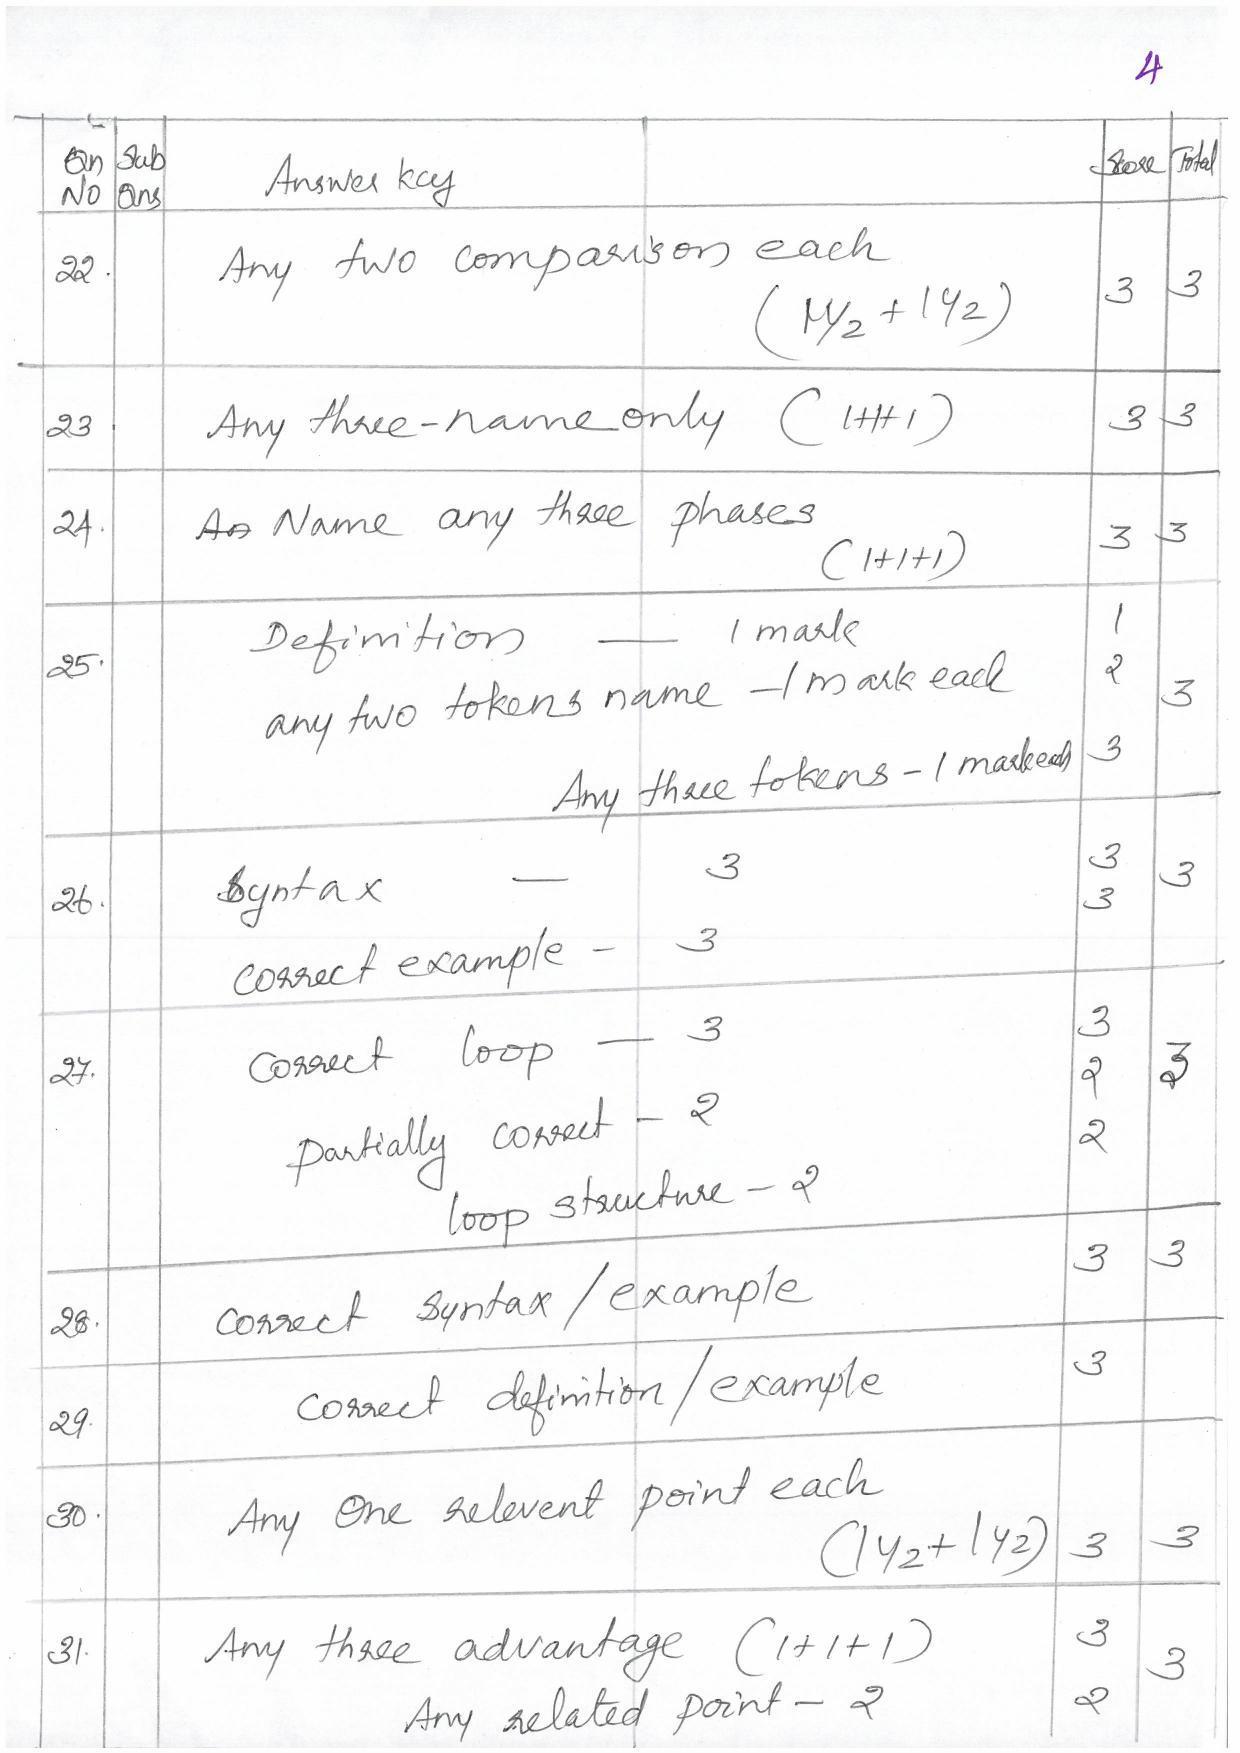 4
Qn No | Sub Qns | Answer key | Score | Total
22. Any two comparison each
(1 1/2 + 1 1/2) 3 3
23 Any three-name only (1+1+1) 3 3
24. Name any three phases
(1+1+1) 3 3
25. Definition — 1 mark 1
any two tokens name – 1 mark each 2 3
Any three tokens – 1 mark each 3
26. Syntax — 3 3 3
correct example – 3 3
27. correct loop — 3 3 3
partially correct – 2 2
loop structure – 2 2
28. correct syntax / example 3 3
29. correct definition / example 3
30. Any One relevent point each
(1 1/2 + 1 1/2) 3 3
31. Any three advantage (1+1+1) 3 3
Any related point – 2 2